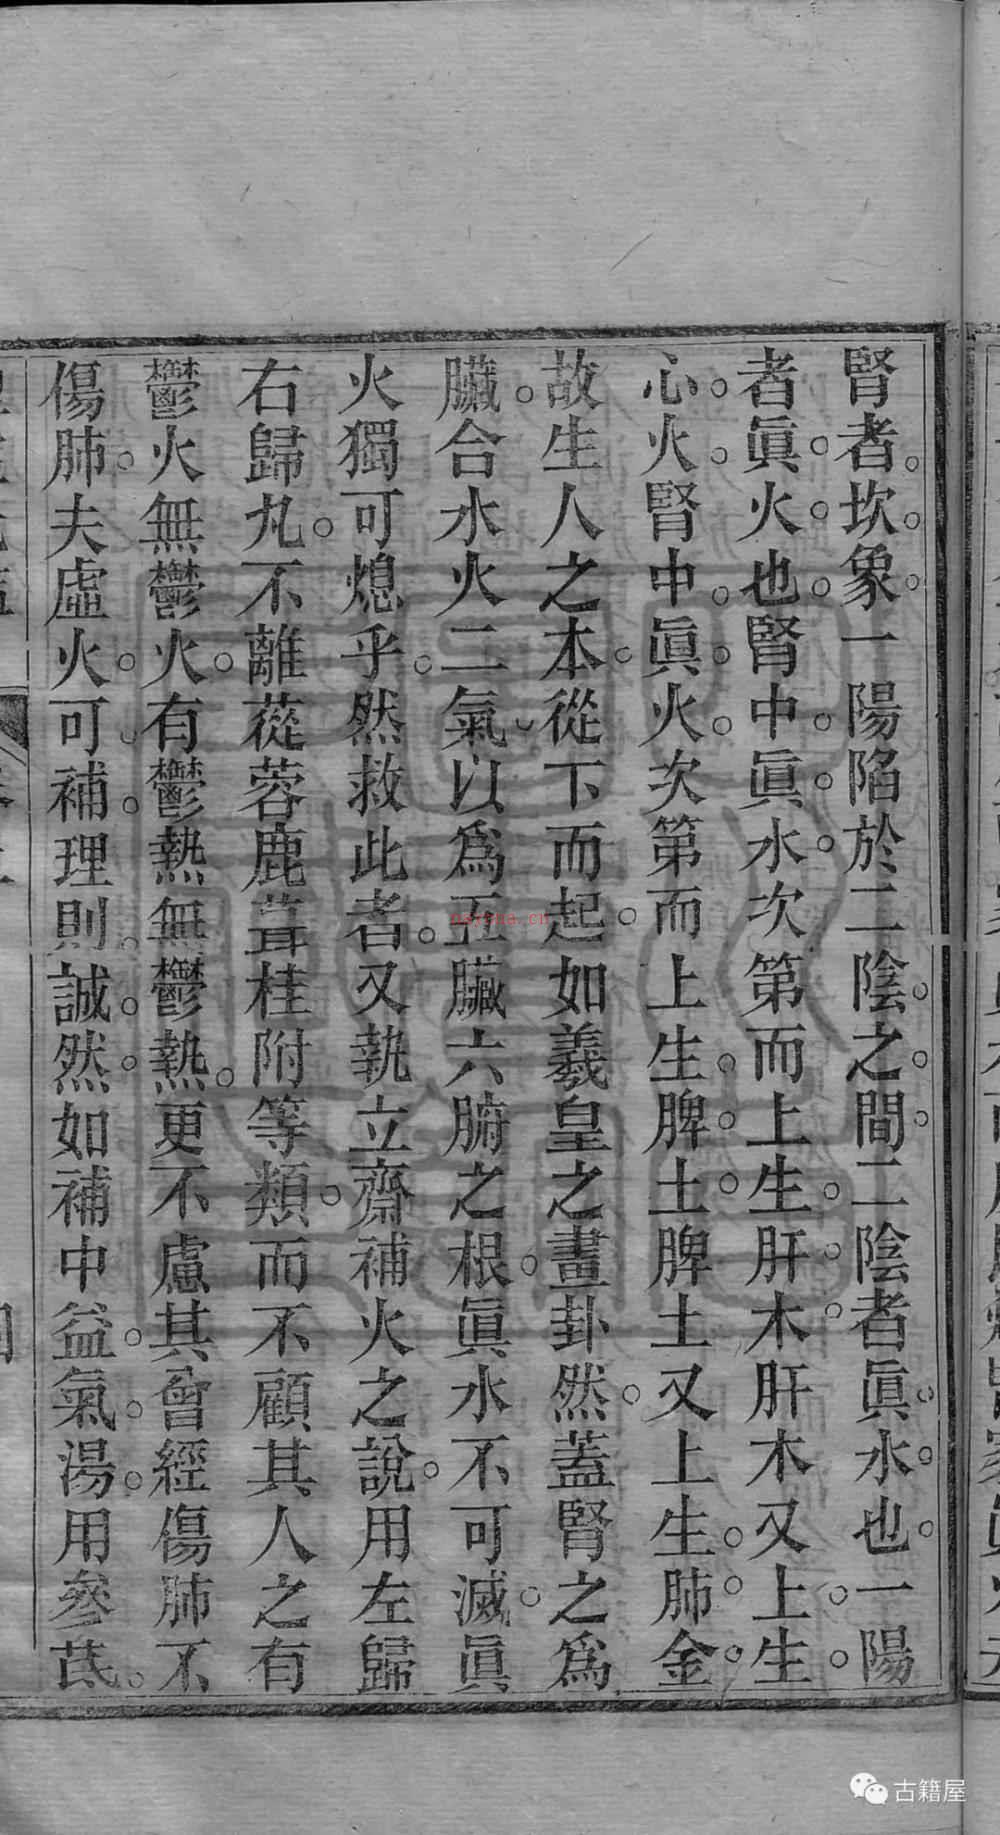 腎者坎象一陽陷於二陰之間二陰者眞水也一陽
者眞火也腎中眞水次第而上生肝木肝木又上生
心火腎中眞火次第而上生脾土脾土又上生肺金
故生人之本從下而起如羲皇之畫卦然蓋腎之為
臟合水火二氣以為五臟六腑之根眞水不可滅眞
火獨可熄乎然救此者又執立齋補火之說用左歸
右歸丸不離蓯蓉鹿茸桂附等類而不顧其人之有
鬱火無鬱火有鬱熱無鬱熱更不慮其曾經傷肺不
傷肺夫虛火可補理則誠然如補中益氣湯用參芪
古籍屋